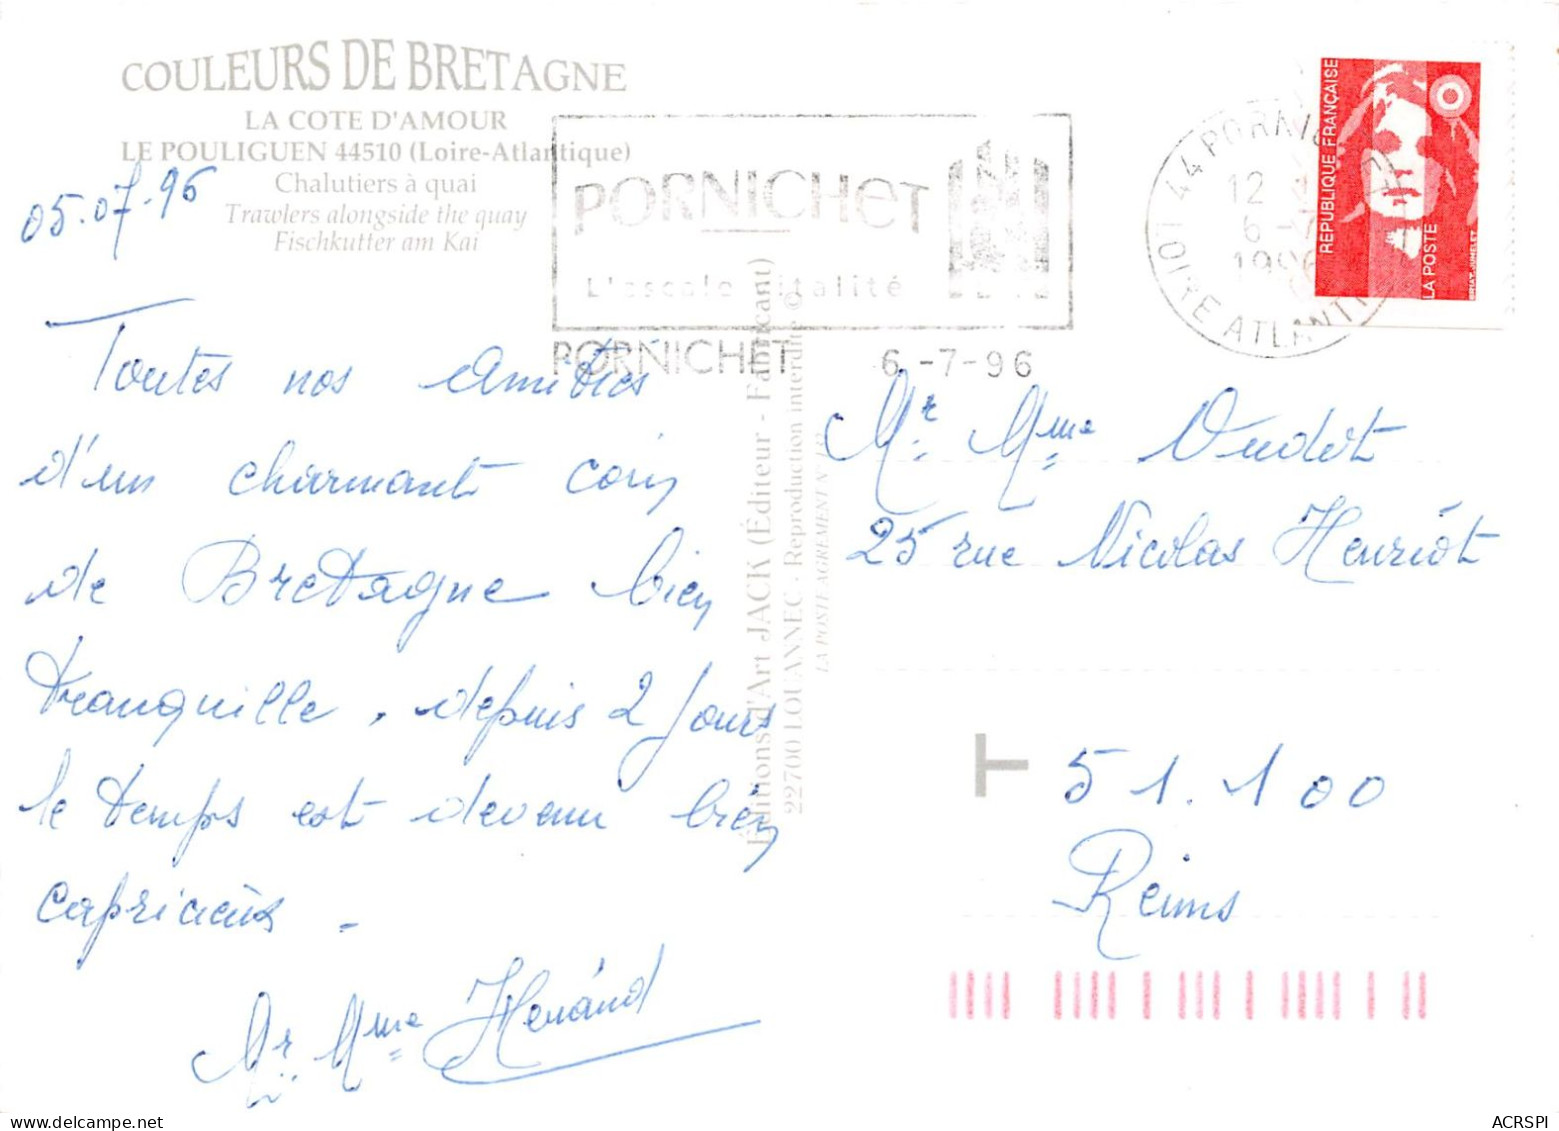 COULEURS DE BRETAGNE
LA COTE D'AMOUR
LE POULIGUEN 44510 (Loire-Atlantique)
Chalutiers à quai
Trawlers alongside the quay
Fischkutter am Kai
05.07.96
Toutes nos Amitiés
d'un charmant coin
de Bretagne bien
tranquille, depuis 2 jours
le temps est devenu bien
capricieux.
Mr Mme Henand
PORNICHET
L'escale vitalité
PORNICHET 6-7-96
44 PORNICHET
12
6-7
1996
LOIRE ATLANTIQUE
RÉPUBLIQUE FRANÇAISE
LA POSTE
BRIAT-JUMELET
Éditions d'Art JACK (Éditeur - Fabricant)
22700 LOUANNEC - Reproduction interdite ©
LA POSTE AGREMENT N°
Mr Mme Oudot
25 rue Nicolas Henriot
T
51.100
Reims
ACRSPI